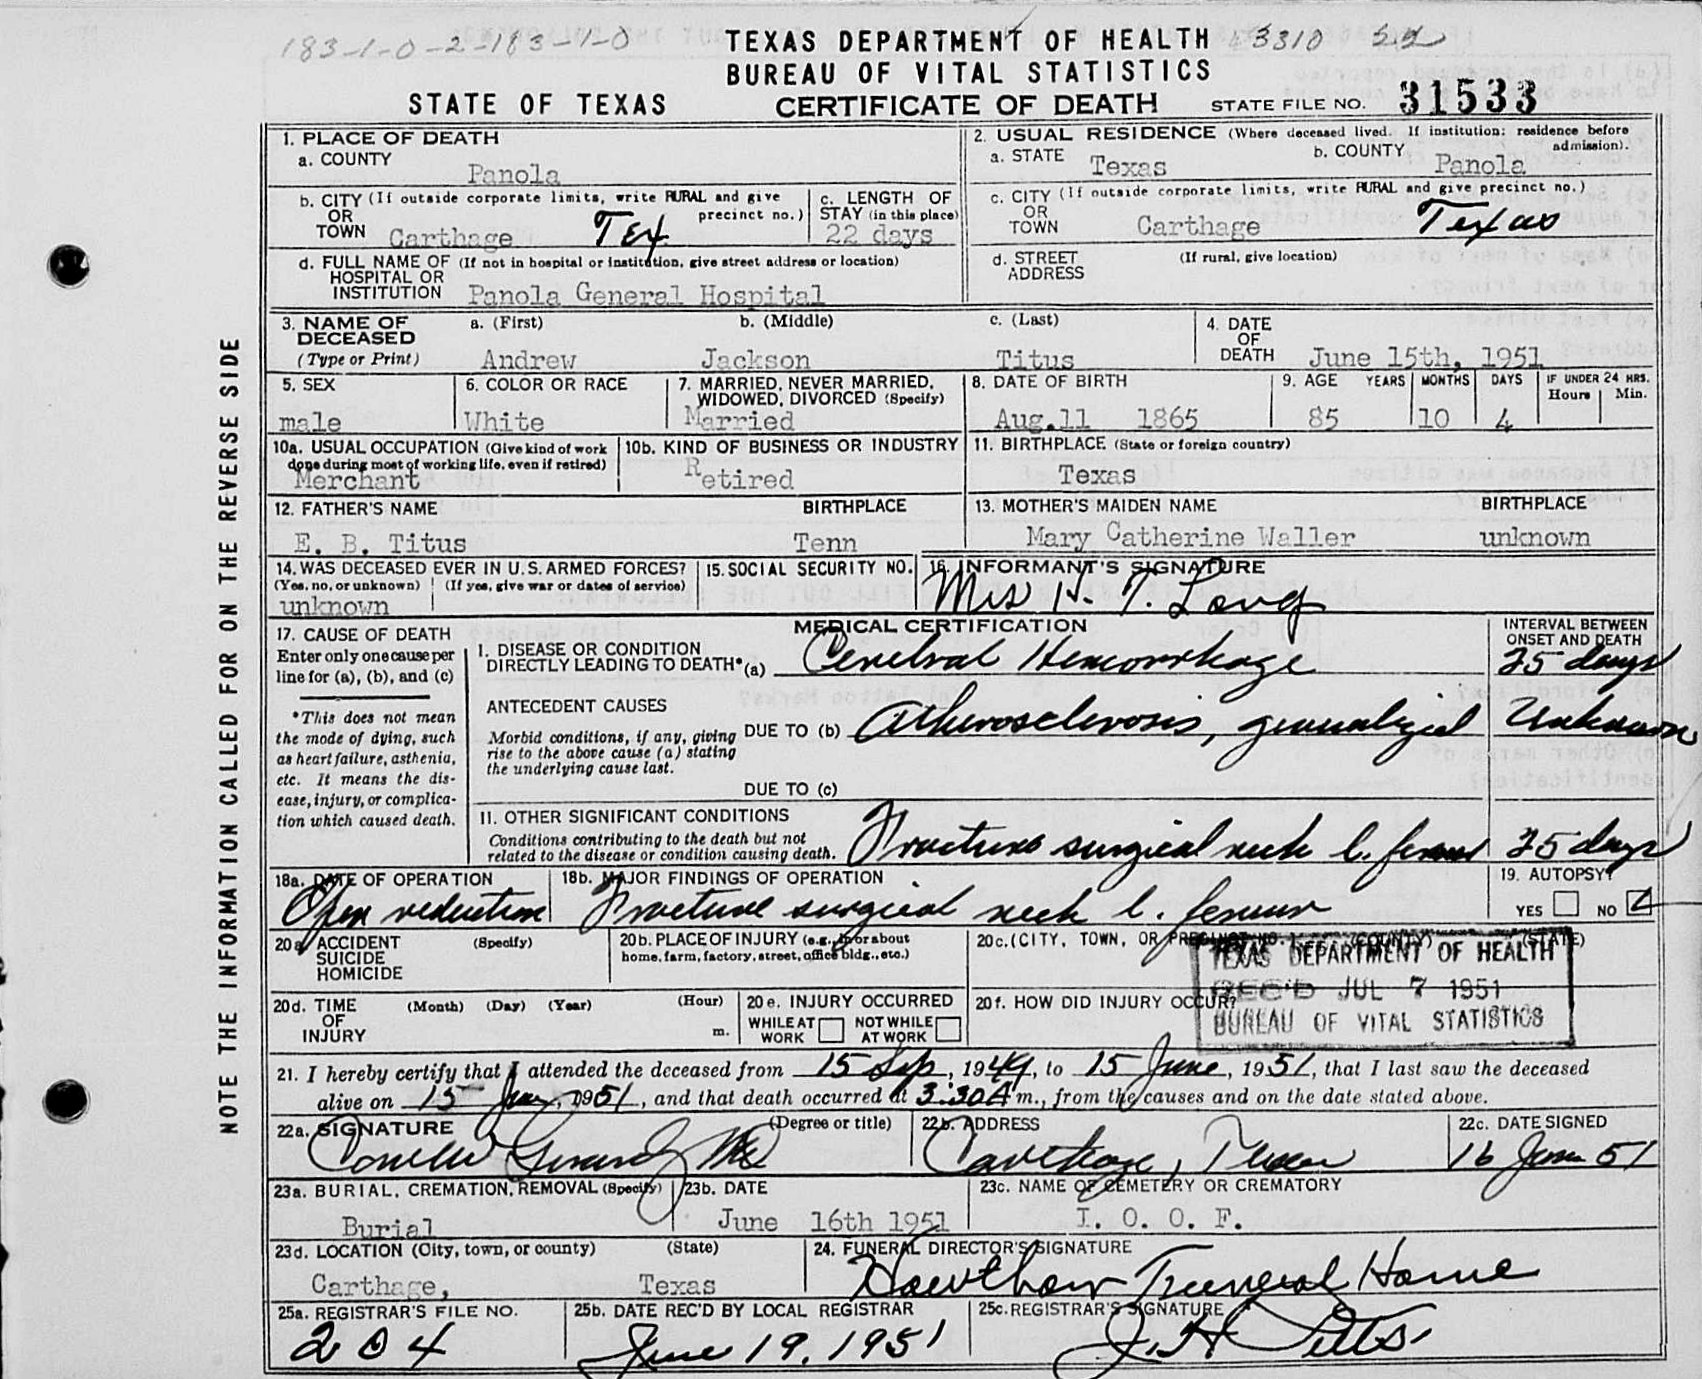 183-1-0-2-183-1-0
TEXAS DEPARTMENT OF HEALTH 43310 52
BUREAU OF VITAL STATISTICS
STATE OF TEXAS CERTIFICATE OF DEATH STATE FILE NO. 31533
NOTE THE INFORMATION CALLED FOR ON THE REVERSE SIDE
1. PLACE OF DEATH
a. COUNTY
Panola
2. USUAL RESIDENCE (Where deceased lived. If institution: residence before admission).
a. STATE Texas b. COUNTY Panola
b. CITY (If outside corporate limits, write RURAL and give precinct no.)
OR
TOWN Carthage Tex
c. LENGTH OF
STAY (in this place)
22 days
c. CITY (If outside corporate limits, write RURAL and give precinct no.)
OR
TOWN Carthage Texas
d. FULL NAME OF (If not in hospital or institution, give street address or location)
HOSPITAL OR
INSTITUTION Panola General Hospital
d. STREET (If rural, give location)
ADDRESS
3. NAME OF a. (First) b. (Middle) c. (Last)
DECEASED
(Type or Print) Andrew Jackson Titus
4. DATE
OF
DEATH June 15th, 1951
5. SEX
male
6. COLOR OR RACE
White
7. MARRIED, NEVER MARRIED,
WIDOWED, DIVORCED (Specify)
Married
8. DATE OF BIRTH
Aug.11 1865
9. AGE YEARS MONTHS DAYS IF UNDER 24 HRS.
Hours Min.
85 10 4
10a. USUAL OCCUPATION (Give kind of work
done during most of working life, even if retired)
Merchant
10b. KIND OF BUSINESS OR INDUSTRY
Retired
11. BIRTHPLACE (State or foreign country)
Texas
12. FATHER'S NAME BIRTHPLACE
E. B. Titus Tenn
13. MOTHER'S MAIDEN NAME BIRTHPLACE
Mary Catherine Waller unknown
14. WAS DECEASED EVER IN U.S. ARMED FORCES?
(Yes, no, or unknown) (If yes, give war or dates of service)
unknown
15. SOCIAL SECURITY NO.
16. INFORMANT'S SIGNATURE
Mrs H. T. Long
MEDICAL CERTIFICATION
INTERVAL BETWEEN
ONSET AND DEATH
17. CAUSE OF DEATH
Enter only one cause per
line for (a), (b), and (c)
*This does not mean
the mode of dying, such
as heart failure, asthenia,
etc. It means the dis-
ease, injury, or complica-
tion which caused death.
I. DISEASE OR CONDITION
DIRECTLY LEADING TO DEATH* (a) Cerebral Hemorrhage 25 days
ANTECEDENT CAUSES
Morbid conditions, if any, giving
rise to the above cause (a) stating
the underlying cause last.
DUE TO (b) Atherosclerosis, generalized Unknown
DUE TO (c)
II. OTHER SIGNIFICANT CONDITIONS
Conditions contributing to the death but not
related to the disease or condition causing death.
Fracture surgical neck l. femur 25 days
18a. DATE OF OPERATION
Open reduction
18b. MAJOR FINDINGS OF OPERATION
Fracture surgical neck l. femur
19. AUTOPSY?
YES NO
20a. ACCIDENT (Specify)
SUICIDE
HOMICIDE
20b. PLACE OF INJURY (e.g., in or about
home, farm, factory, street, office bldg., etc.)
20c. (CITY, TOWN, OR PRECINCT NO.) (COUNTY) (STATE)
TEXAS DEPARTMENT OF HEALTH
REC'D JUL 7 1951
BUREAU OF VITAL STATISTICS
20d. TIME (Month) (Day) (Year) (Hour)
OF
INJURY m.
20e. INJURY OCCURRED
WHILE AT WORK NOT WHILE AT WORK
20f. HOW DID INJURY OCCUR?
21. I hereby certify that I attended the deceased from 15 Sep, 1949, to 15 June, 1951, that I last saw the deceased
alive on 15 June, 1951, and that death occurred at 3:30A m., from the causes and on the date stated above.
22a. SIGNATURE (Degree or title)
MD
22b. ADDRESS
Carthage, Texas
22c. DATE SIGNED
16 June 51
23a. BURIAL, CREMATION, REMOVAL (Specify)
Burial
23b. DATE
June 16th 1951
23c. NAME OF CEMETERY OR CREMATORY
I. O. O. F.
23d. LOCATION (City, town, or county) (State)
Carthage, Texas
24. FUNERAL DIRECTOR'S SIGNATURE
Hawthorn Funeral Home
25a. REGISTRAR'S FILE NO.
204
25b. DATE REC'D BY LOCAL REGISTRAR
June 19, 1951
25c. REGISTRAR'S SIGNATURE
J. H. Pitts